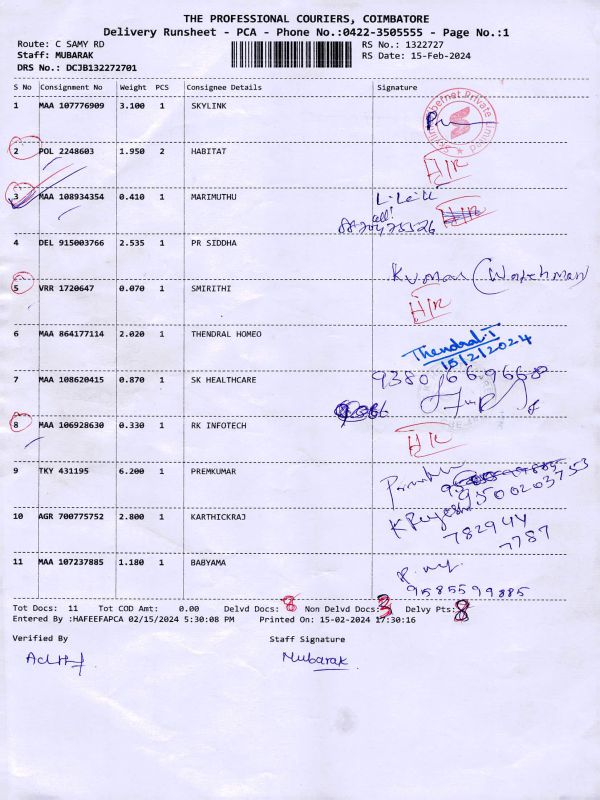 THE PROFESSIONAL COURIERS, COIMBATORE
Delivery Runsheet - PCA - Phone No.:0422-3505555 - Page No.:1
Route: C SAMY RD RS No.: 1322727
Staff: MUBARAK RS Date: 15-Feb-2024
DRS No.: DCJB132272701
S No Consignment No Weight PCS Consignee Details Signature
1 MAA 107776909 3.100 1 SKYLINK
2 POL 2248603 1.950 2 HABITAT H/R
3 MAA 108934354 0.410 1 MARIMUTHU H/R
4 DEL 915003766 2.535 1 PR SIDDHA Kumar (Watchman)
5 VRR 1720647 0.070 1 SMIRITHI H/R
6 MAA 864177114 2.020 1 THENDRAL HOMEO Thendral.T
15/2/2024
7 MAA 108620415 0.870 1 SK HEALTHCARE
8 MAA 106928630 0.330 1 RK INFOTECH H/R
9 TKY 431195 6.200 1 PREMKUMAR
9500203753
10 AGR 700775752 2.800 1 KARTHICKRAJ
782944
7787
11 MAA 107237885 1.180 1 BABYAMA
9585599885
Tot Docs: 11 Tot COD Amt: 0.00 Delvd Docs: 8 Non Delvd Docs: 3 Delvy Pts: 8
Entered By :HAFEEFAPCA 02/15/2024 5:30:08 PM Printed On: 15-02-2024 17:30:16
Verified By Staff Signature
Mubarak